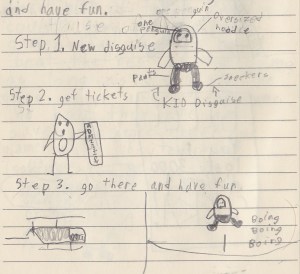 and have fun.
one penguin
oversized hoodie
Step 1. New disguise
pants
sneekers
KID Disguise
Step 2. get tickets
Step 3. go there and have fun.
Boing
Boing
Boing